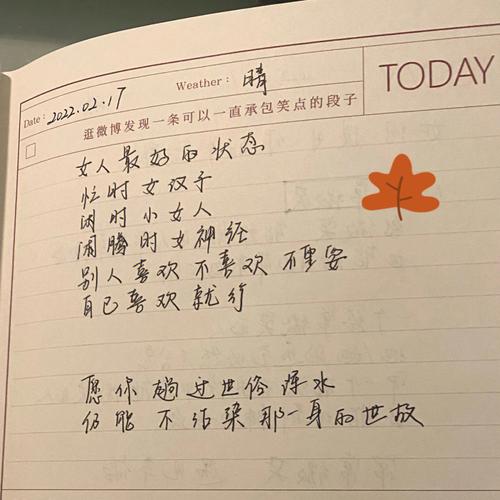 Date: 2022.02.17 Weather: 晴
TODAY
逛微博发现一条可以一直承包笑点的段子
女人最好的状态
忙时女汉子
闲时小女人
闹腾时女神经
别人喜欢不喜欢不重要
自己喜欢就行
愿你趟过世俗浑水
仍能不沾染那一身的世故